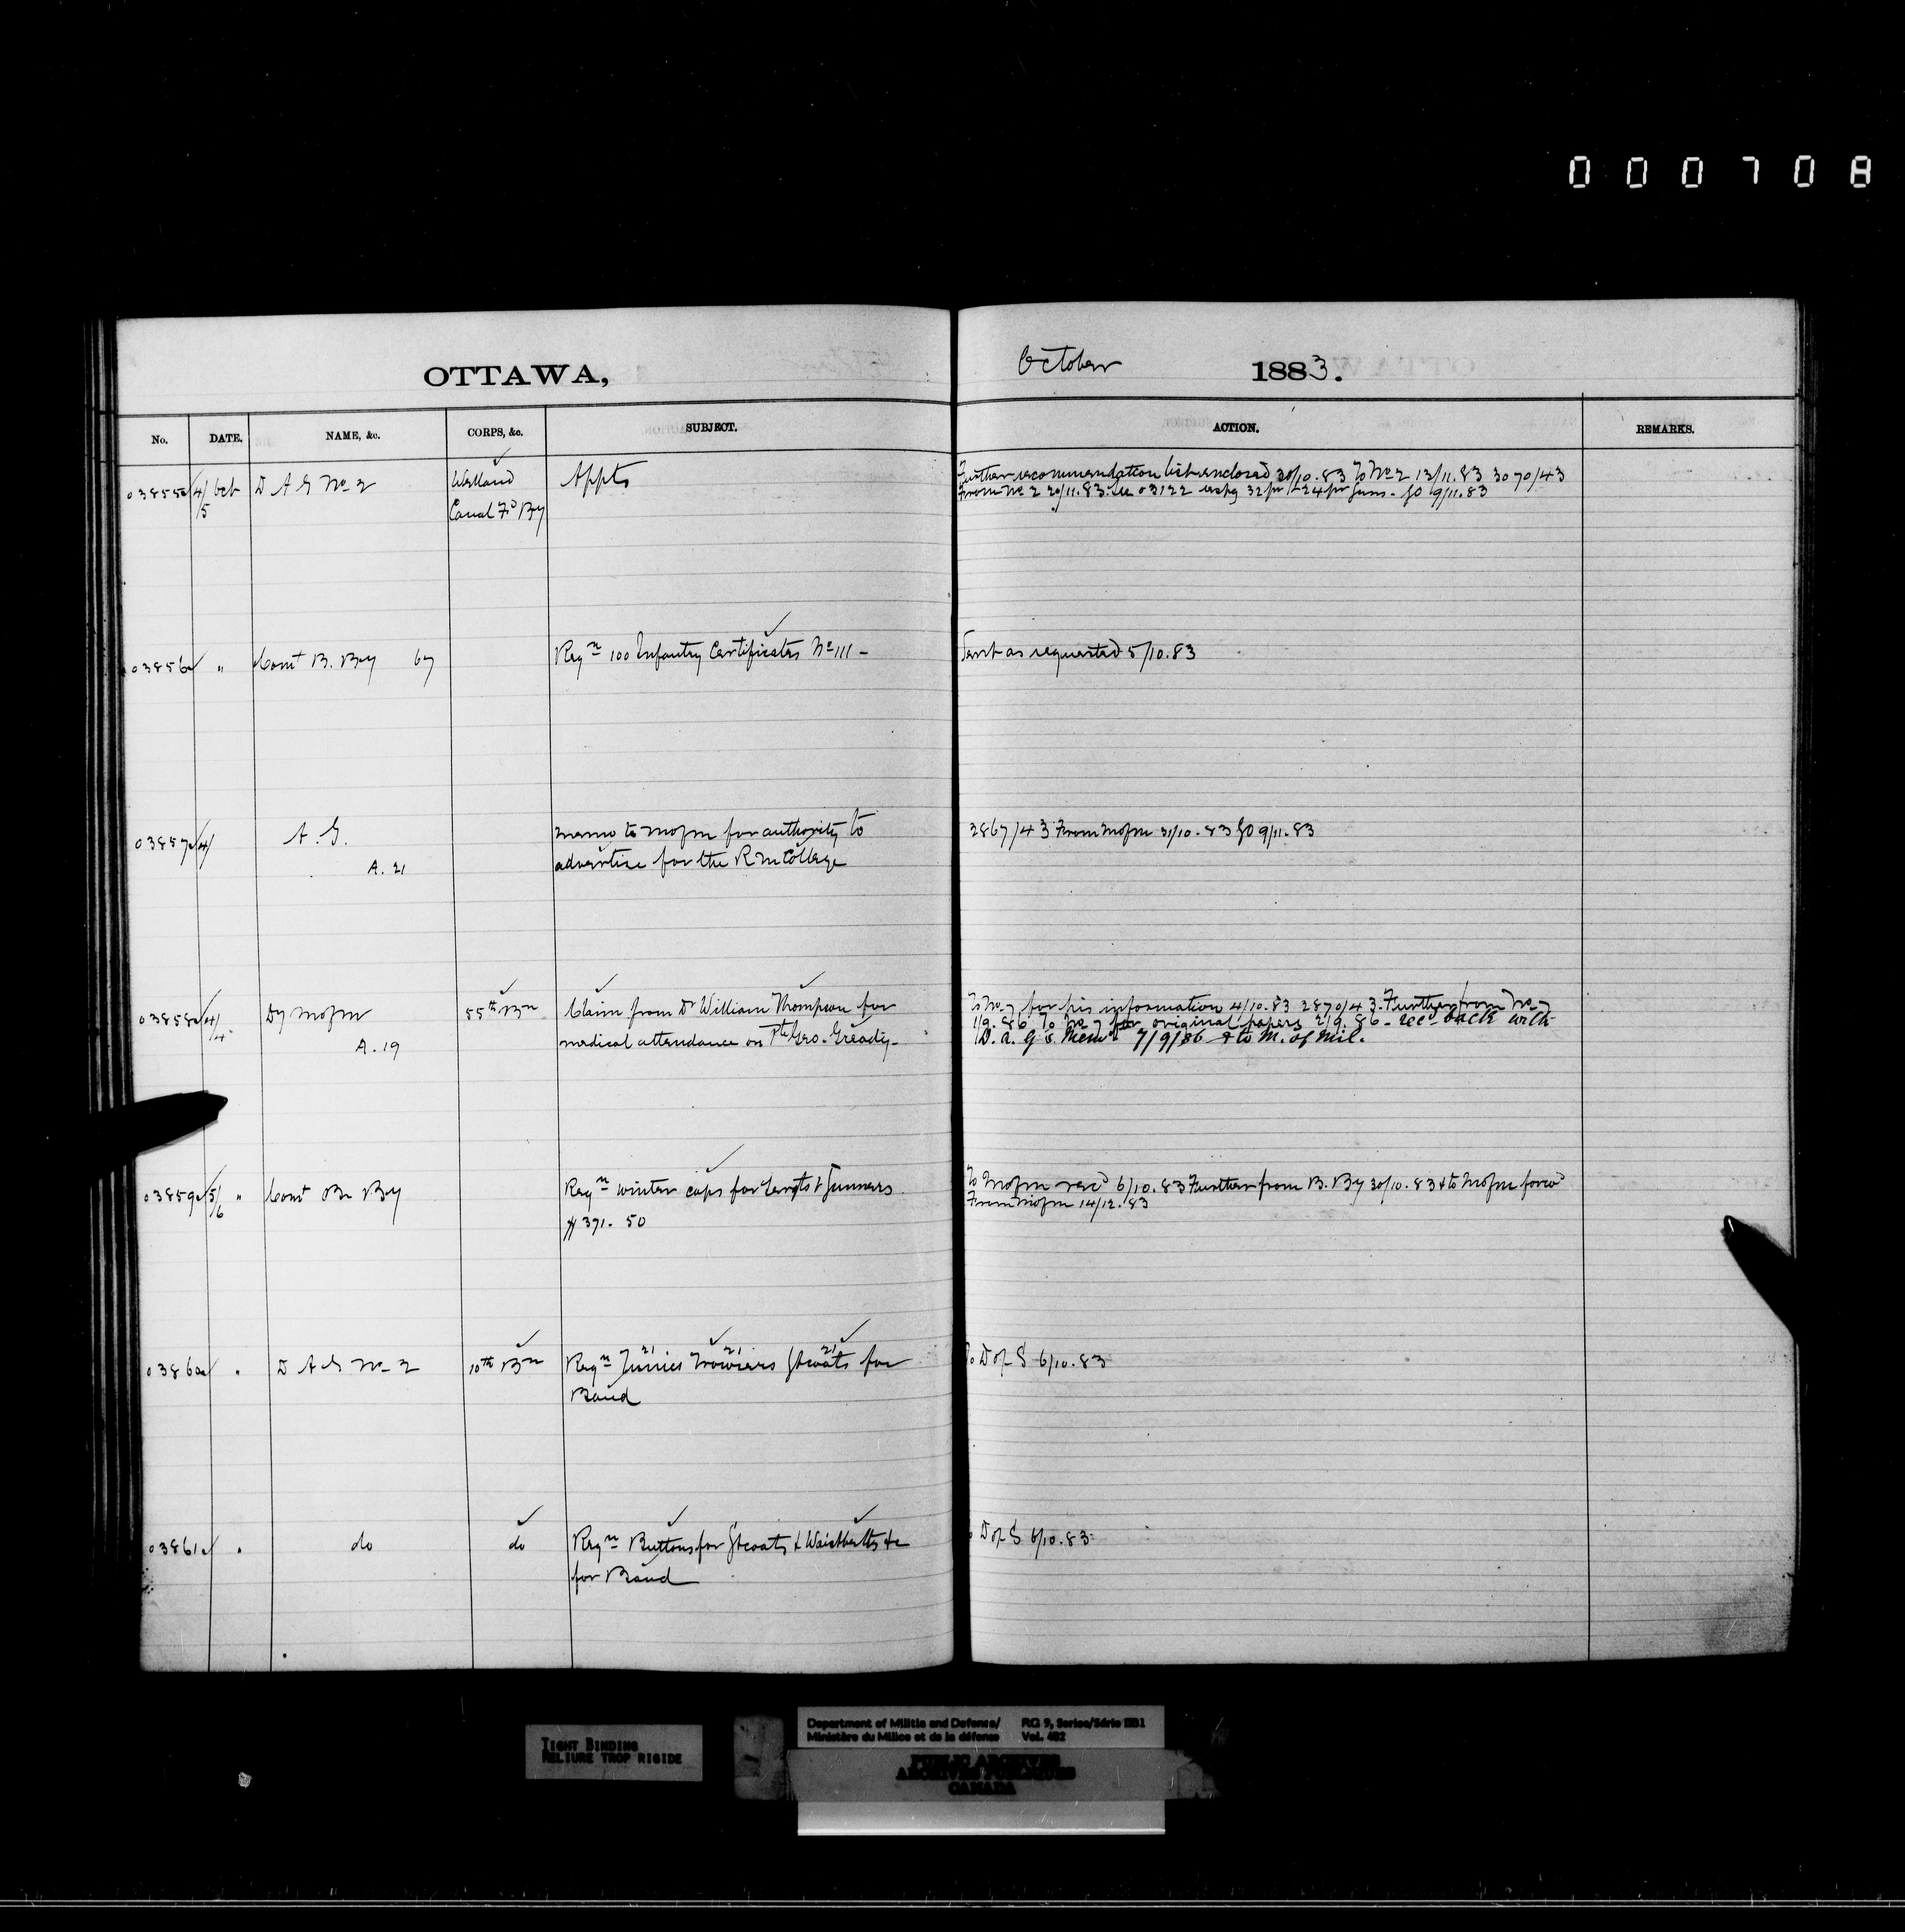 000708
OTTAWA,
October 1883.
No. DATE. NAME, &c. CORPS, &c. SUBJECT. ACTION. REMARKS.
03855 4/5 Oct D A G No 2 Welland Appts Further recommendation list enclosed 30/10.83 To No 2 13/11.83 3070/43
Canal Fd By From No 2 20/11.83. See 03122 respg 32 pr & 24 pr Guns. GO 9/11.83
03856 " Comt B. By 67 Reqn 100 Infantry Certificates No 111 - Sent as requested 5/10.83
03857 4/ A. G. memo to MofM for authority to 2867/43 From MofM 31/10.83 GO 9/11.83
A. 21 advertise for the R M College
03858 4/4 Dy MofM 55th Bn Claim from Dr William Thompson for To No 7 for his information 4/10.83 2870/43. Further from No 7
A. 19 medical attendance on Pte Geo. Gready - 1/9.86 To No 7 for original papers 2/9.86 - recd back with
D. A. G's Memo 7/9/86 & to M. of Mil.
03859 5/6 " Comt B. By Reqn winter caps for Sergts & Gunners To MofM recd 6/10.83 Further from B. By 30/10.83 & to MofM forwd
$ 391. 50 From MofM 14/12.83
03860 " D A G No 2 10th Bn Reqn 21 Tunics 21 Trowsers 21 Gtcoats for To D of S 6/10.83
Band
03861 " do do Reqn Buttons for Gtcoats & Waistbelts &c D of S 6/10.83
for Band
TIGHT BINDING
RELIURE TROP RIGIDE
Department of Militia and Defence/ RG 9, Series/Série IIB1
Ministère du Milice et de la défense Vol. 482
PUBLIC ARCHIVES
ARCHIVES PUBLIQUES
CANADA